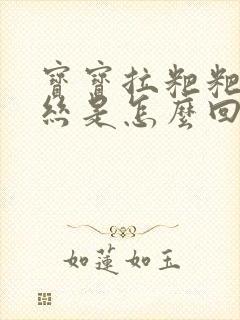 寶寶拉粑粑
絲是怎麼回
如蓮如玉